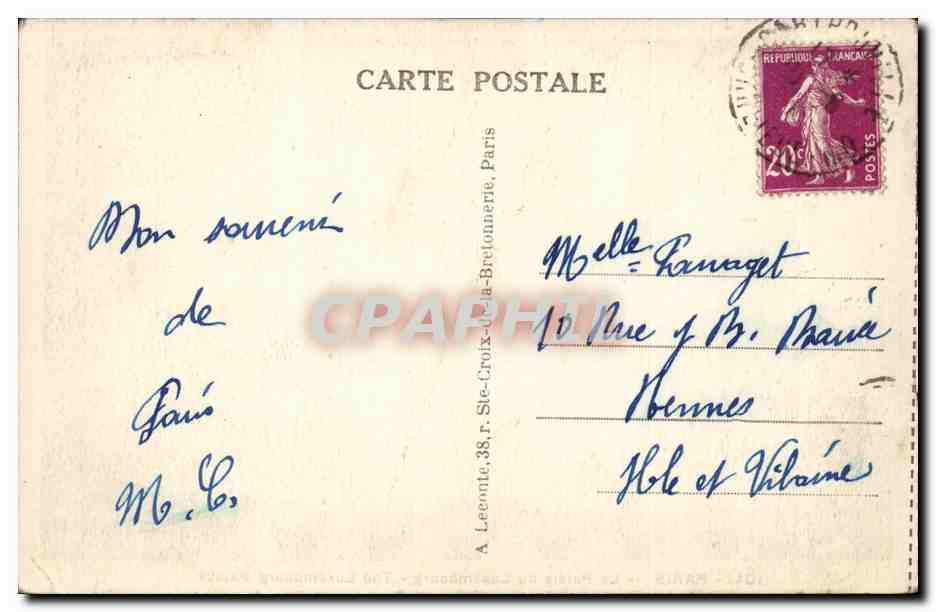 CARTE POSTALE
REPUBLIQUE FRANÇAISE
20c
POSTES
Mon souvenir
de
Paris
M. C.
A. Leconte, 38, r. Ste-Croix-de-la-Bretonnerie, Paris
Melle
10 Rue J B. Barré
Rennes
Ille et Vilaine
CPAPHIL
PARIS - Le Palais du Luxembourg - The Luxembourg Palace